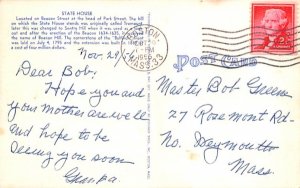 STATE HOUSE
Located on Beacon Street at the head of Park Street. The hill
on which the State House stands was originally called Treamount,
later this was changed to Sentry Hill when it was used as a lookout
and after the erection of the Beacon 1634-1635, it became known
as Beacon Hill. The cornerstone of the "Bulfinch Front"
was laid on July 4, 1795 and was built in
of four million dollars.
BOSTON,
MASS
Post Card
2¢
Nov. 29
Dear Bob,
Hope you and
your Mother are well
and hope to be
seeing you soon
Grampa
Master Bob Greene
27 Rosemont Rd-
No. Weymouth
Mass.